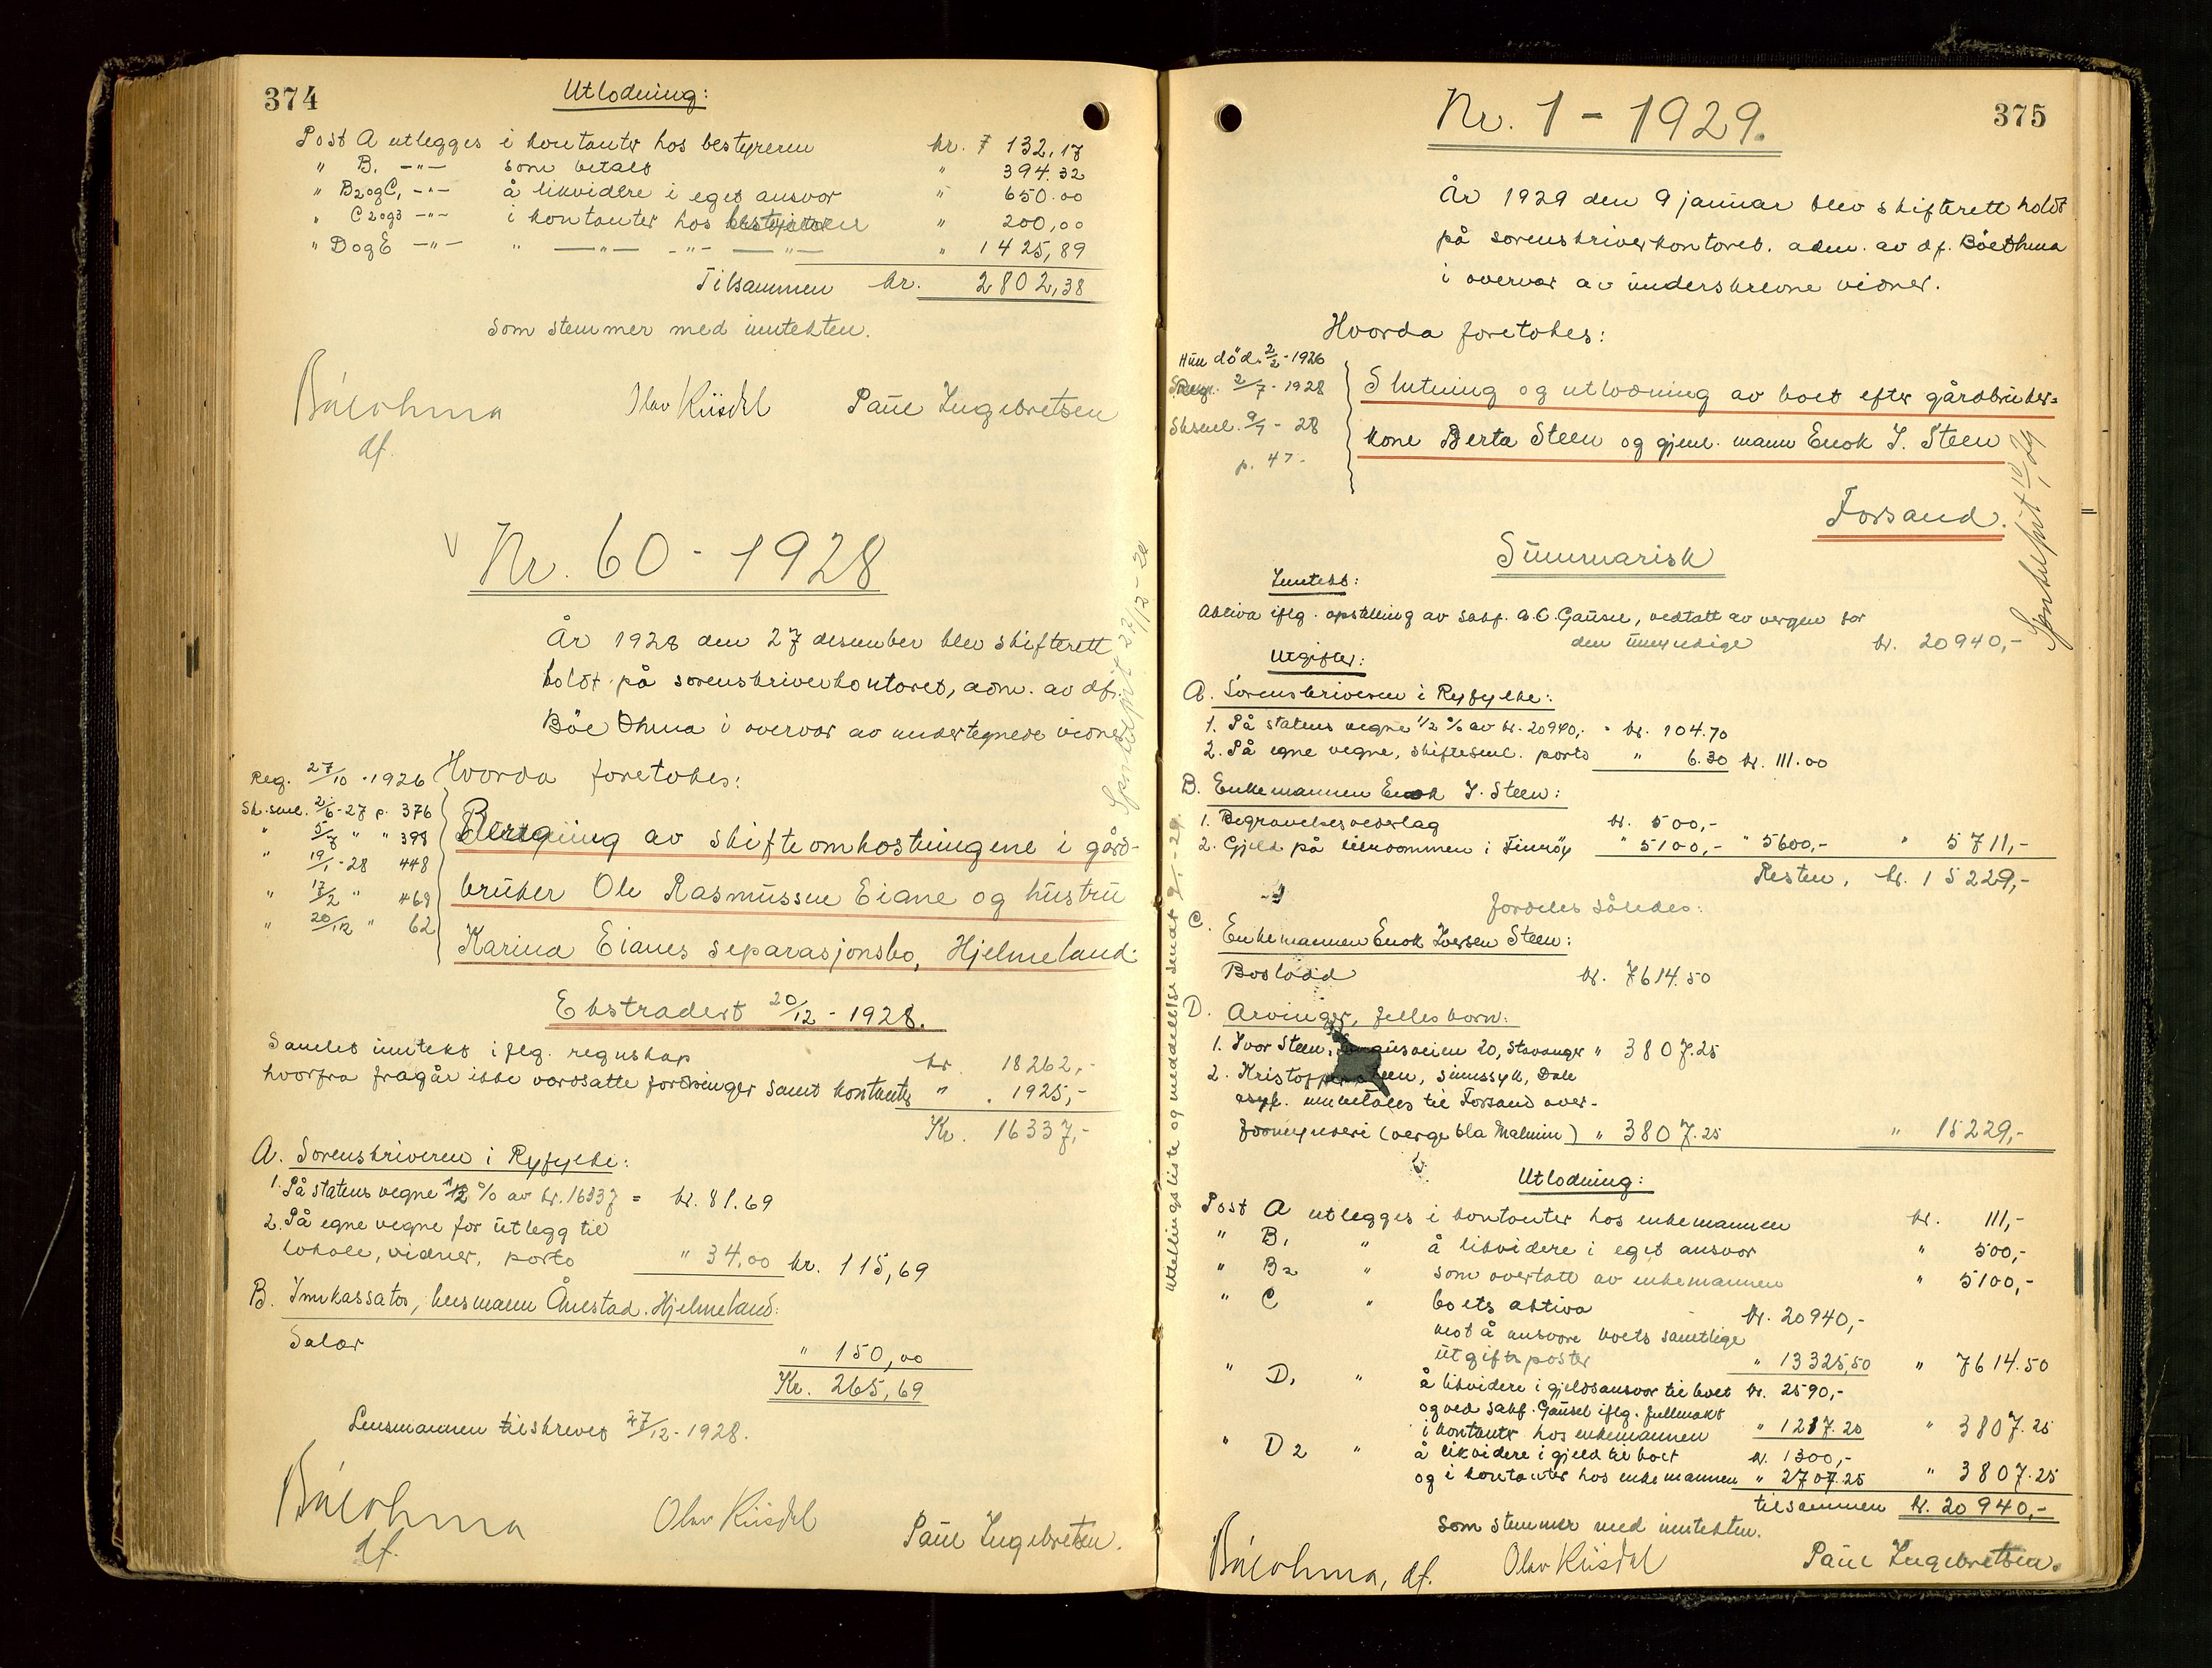 374
Utlodning:
Post A utlegges i kontanter hos bestyreren kr. 132,17
" B. -"- som betalt " 394.32
" B2 og C, -"- å likvidere i eget ansvar " 650.00
" C 2 og 3 -"- i kontanter hos " 200,00
" D og E -"- " -"- -"- -"- " 1425,89
Tilsammen kr. 2802,38
som stemmer med inntekten.
df.
Olav Kiisdal Paul Ingebretsen
Nr. 60 - 1928
År 1928 den 27 desember blev skifterett
holdt på sorenskriverkontoret, adm. av df.
Böe Ohma i overvær av undertegnede vidner
Hvorda foretokes:
Reg. 27/10 - 1926
Sk.saml. 2/6 - 27 p. 376
" 5/7 " " 398
" 19/1 - 28 448
" 17/2 " 469
" 20/12 " 62
av skifteomkostningene i gård-
bruker Ole Rasmussen Eiane og hustru
Karina Eianes separasjonsbo, Hjelmeland.
Ekstradert 20/12 - 1928.
Samlet inntekt iflg. regnskap kr. 18262,-
hvorfra fragår ikke verdsatte fordringer samt kontanter " 1925,-
Kr. 16337,-
A. Sorenskriveren i Ryfylke:
1. På statens vegne 1/2 % av kr. 16337 = kr. 81.69
2. På egne vegne for utlegg til
lokale, vidner, porto " 34,00 kr. 115,69
B. Innkassator, lensmann Ånestad. Hjelmeland:
Salær " 150,00
Kr. 265,69
Lensmannen tilskrevet 27/12 - 1928.
df.
Olav Kiisdal Paul Ingebretsen.
375
Nr. 1 - 1929.
År 1929 den 9 januar blev skifterett holdt
på sorenskriverkontoret. adm. av df. Böe Ohma
i overvær av underskrevne vidner.
Hvorda foretokes:
Hun död. 2/2 - 1926
Reg. 2/7 - 1928
Sksaml. 9/7 - 28
p. 47.
Slutning og utlodning av boet efter gårdbruker-
kone Berta Steen og gjenl. mann Enok I. Steen
Forsand.
Summarisk
Inntekt:
Aktiva iflg. opstilling av sakf. A. C. Gausel, vedtatt av vergen for
den umyndige kr. 20940,-
Utgifter:
A. Sorenskriveren i Ryfylke:
1. På statens vegne 1/2 % av kr. 20940,- kr. 104.70
2. På egne vegne, skiftesaml. porto " 6.30 kr. 111.00
B. Enkemannen Enok I. Steen:
1. Begravelsesvederlag kr. 500,-
2. Gjeld på eiendommen i Finnöy " 5100,- " 5600,- " 5711,-
Resten, kr. 15229,-
fordeles således:
C. Enkemannen Enok Iversen Steen:
Boslodd kr. 7614.50
D. Arvinger, felles barn:
1. Ivar Steen, 20, Stavanger " 3807.25
2. Kristoffer Steen, sinnssyk, Dale
asyl. innbetales til Forsand over-
formynderi (verge Ola Malmin) " 3807.25 " 15229,-
Utlodning:
Post A utlegges i kontanter hos enkemannen kr. 111,-
" B1 " å likvidere i eget ansvar " 500,-
" B2 " som overtatt av enkemannen " 5100,-
" C " boets aktiva kr. 20940,-
mot å ansvare boets samtlige
utgiftsposter " 13325,50 " 7614.50
" D1 " å likvidere i gjeldsansvar til boet kr. 2590,-
og ved sakf. Gausel iflg. fullmakt
i kontanter hos enkemannen " 1217.25 " 3807.25
" D2 " å likvidere i gjeld til boet kr. 1300,-
og i kontanter hos enkemannen " 2707.25 " 3807.25
tilsammen kr. 20940,-
som stemmer med inntekten.
df. Olav Kiisdal Paul Ingebretsen.
Utlodningsliste og meddelelse sendt 9/1 - 29.